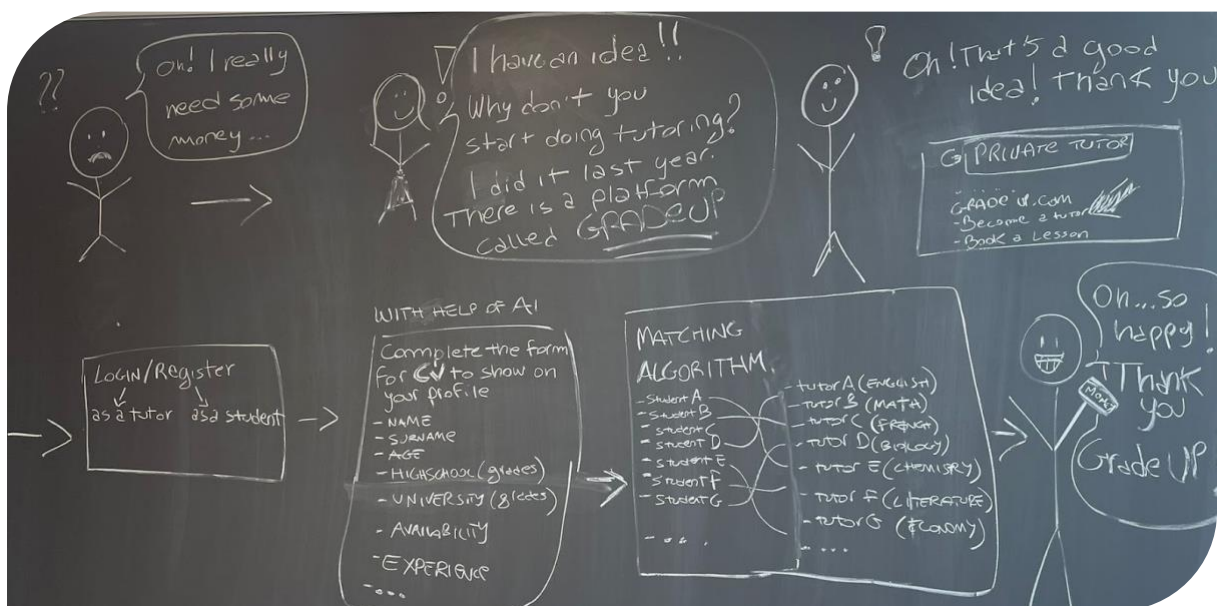 ??
Oh! I really
need some
money...
I have an idea!!
Why don't you
start doing tutoring?
I did it last year.
There is a platform
called GRADEUP
!
Oh! That's a good
idea! Thank you
G PRIVATE TUTOR
GRADEUP.com
- Become a tutor
- Book a Lesson
LOGIN/Register
as a tutor as a student
WITH HELP OF AI
Complete the form
for CV to show on
your profile
- NAME
- SURNAME
- AGE
- HIGHSCHOOL (grades)
- UNIVERSITY (grades)
- AVAILABILITY
- EXPERIENCE
- ...
MATCHING
ALGORITHM.
- Student A
- Student B
- Student C
- Student D
- Student E
- Student F
- Student G
- ...
- tutor A (ENGLISH)
- tutor B (MATH)
- tutor C (FRENCH)
- tutor D (BIOLOGY)
- tutor E (CHEMISRY)
- tutor F (LITERATURE)
- tutor G (ECONOMY)
- ...
Oh...so
happy!
Thank
you
Grade UP